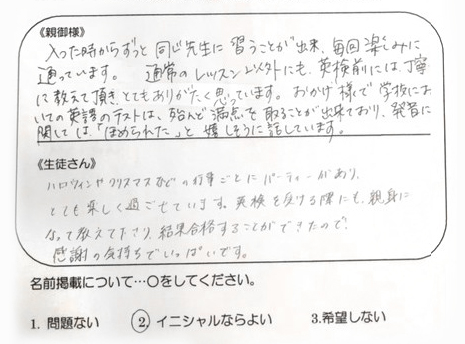 《親御様》
入った時からずっと同じ先生に習うことが出来、毎回楽しみに
通っています。 通常のレッスン以外にも、英検前には、丁寧
に教えて頂き、とてもありがたく思っています。おかげ様で学校にお
いての英語のテストは、殆んど満点を取ることが出来ており、発音に
関しては、「ほめられた」と嬉しそうに話しています。
《生徒さん》
ハロウィンやクリスマスなどの行事ごとにパーティーがあり、
とても楽しく過ごせています。英検を受ける際にも、親身に
なって教えて下さり、結果合格することができたので、
感謝の気持ちでいっぱいです。
名前掲載について…○をしてください。
1. 問題ない 2. イニシャルならよい 3.希望しない